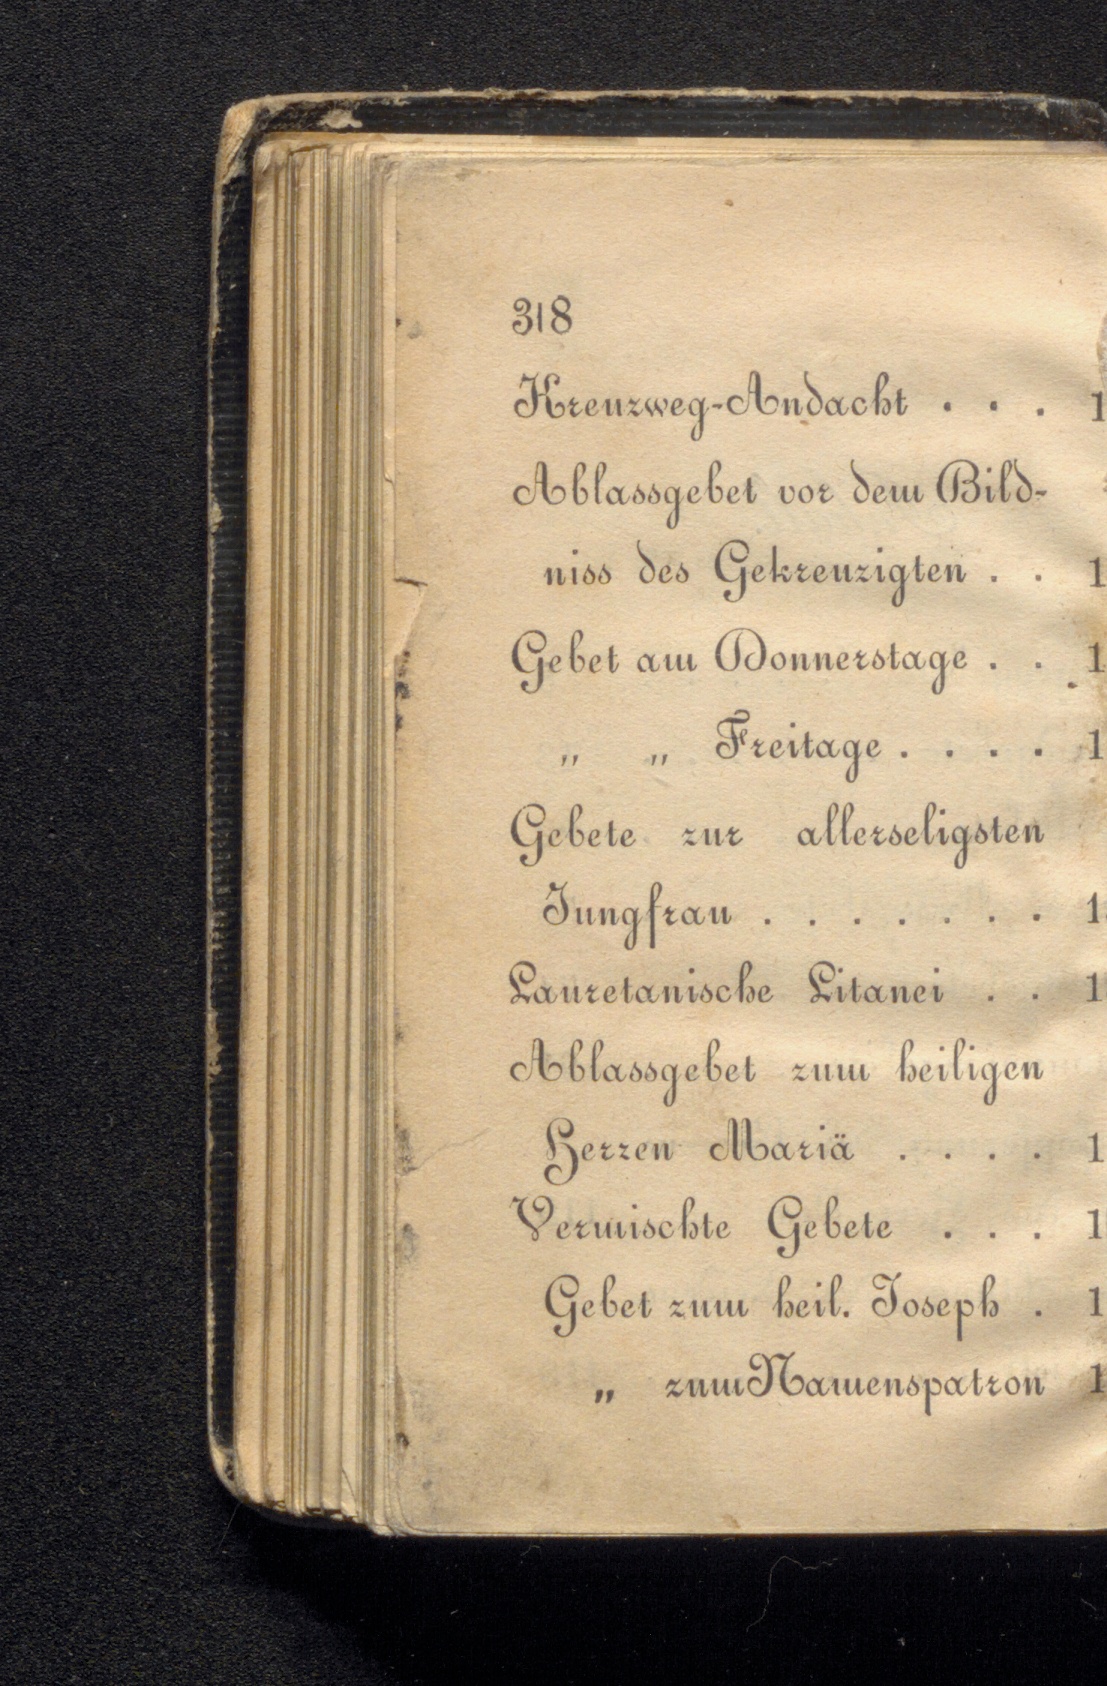 318
Kreuzweg-Andacht . . . 1
Ablassgebet vor dem Bild-
niss des Gekreuzigten . . 1
Gebet am Donnerstage . . 1
„ „ Freitage . . . . 1
Gebete zur allerseligsten
Jungfrau . . . . . . . 1
Lauretanische Litanei . . 1
Ablassgebet zum heiligen
Herzen Mariä . . . . 1
Vermischte Gebete . . . 1
Gebet zum heil. Joseph . 1
„ zum Namenspatron 1